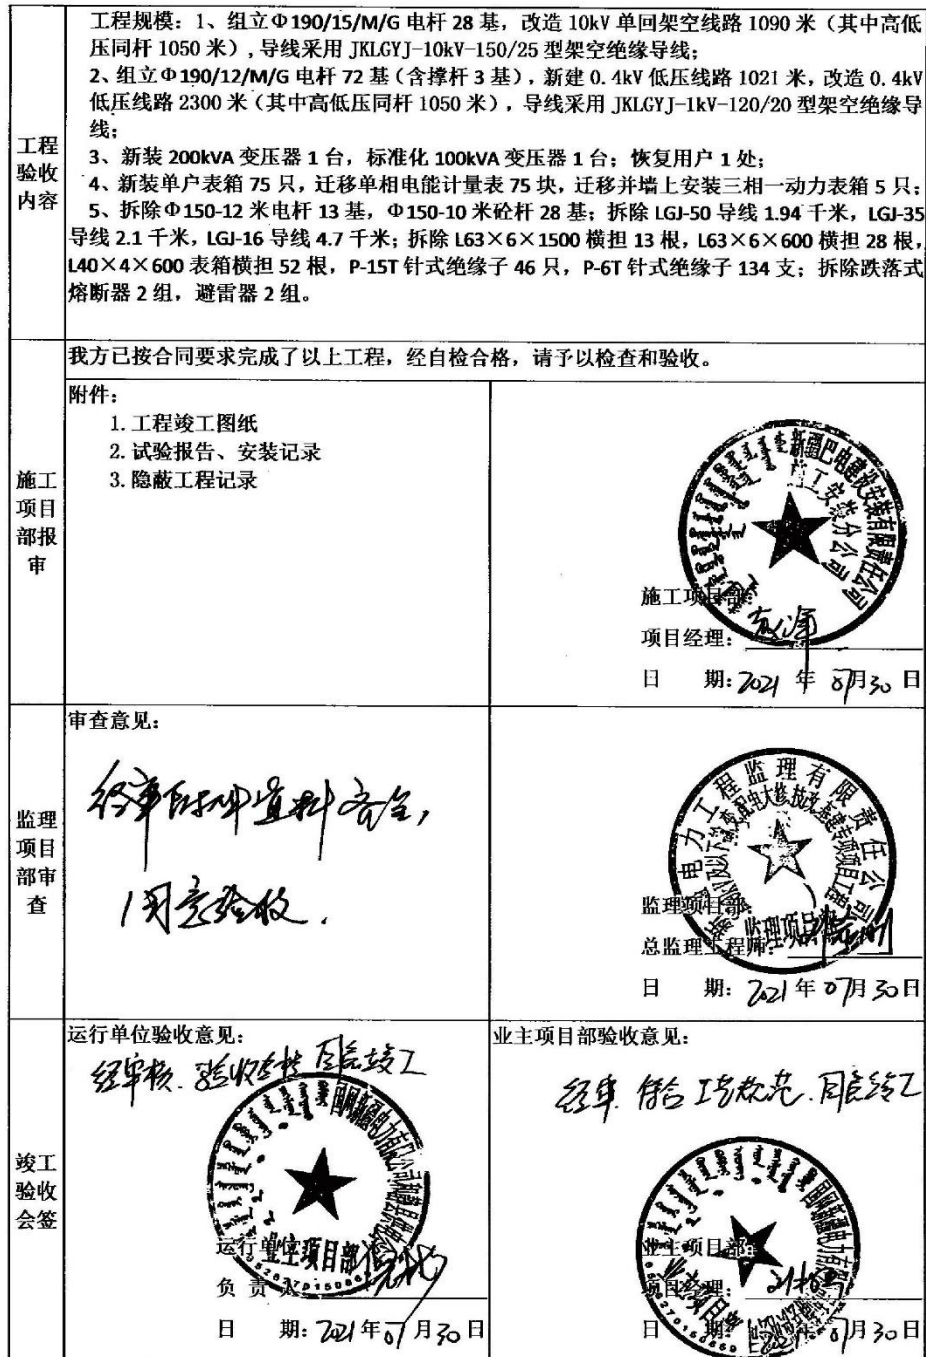 工程规模：1、组立Φ190/15/M/G 电杆 28 基，改造 10kV 单回架空线路 1090 米（其中高低
压同杆 1050 米）,导线采用 JKLGYJ-10kV-150/25 型架空绝缘导线；
2、组立Φ190/12/M/G 电杆 72 基（含撑杆 3 基），新建 0.4kV 低压线路 1021 米，改造 0.4kV
低压线路 2300 米（其中高低压同杆 1050 米），导线采用 JKLGYJ-1kV-120/20 型架空绝缘导
线；
3、新装 200kVA 变压器 1 台，标准化 100kVA 变压器 1 台；恢复用户 1 处；
4、新装单户表箱 75 只，迁移单相电能计量表 75 块，迁移并墙上安装三相一动力表箱 5 只；
5、拆除Φ150-12 米电杆 13 基，Φ150-10 米砼杆 28 基；拆除 LGJ-50 导线 1.94 千米，LGJ-35
导线 2.1 千米，LGJ-16 导线 4.7 千米；拆除 L63×6×1500 横担 13 根，L63×6×600 横担 28 根，
L40×4×600 表箱横担 52 根，P-15T 针式绝缘子 46 只，P-6T 针式绝缘子 134 支；拆除跌落式
熔断器 2 组，避雷器 2 组。
工程
验收
内容
我方已按合同要求完成了以上工程，经自检合格，请予以检查和验收。
施工
项目
部报
审
附件：
1.工程竣工图纸
2.试验报告、安装记录
3.隐蔽工程记录
新疆巴电建设安装有限责任公司
施工安装分公司
施工项目部：
项目经理：
日 期：2021 年 07月30 日
监理
项目
部审
查
审查意见：
经审附件资料齐全，
同意验收．
电力工程监理有限责任公司
监理项目部
监理项目部：
总监理工程师：
日 期：2021年 07月30日
竣工
验收
会签
运行单位验收意见：
经审核．验收合格 同意竣工
业主项目部
运行单位：
负 责 人
日 期：2021年07月30日
业主项目部验收意见：
经审．符合 工艺规范．同意竣工
业主项目部：
项目经理：
日 期：2021年 07月30日